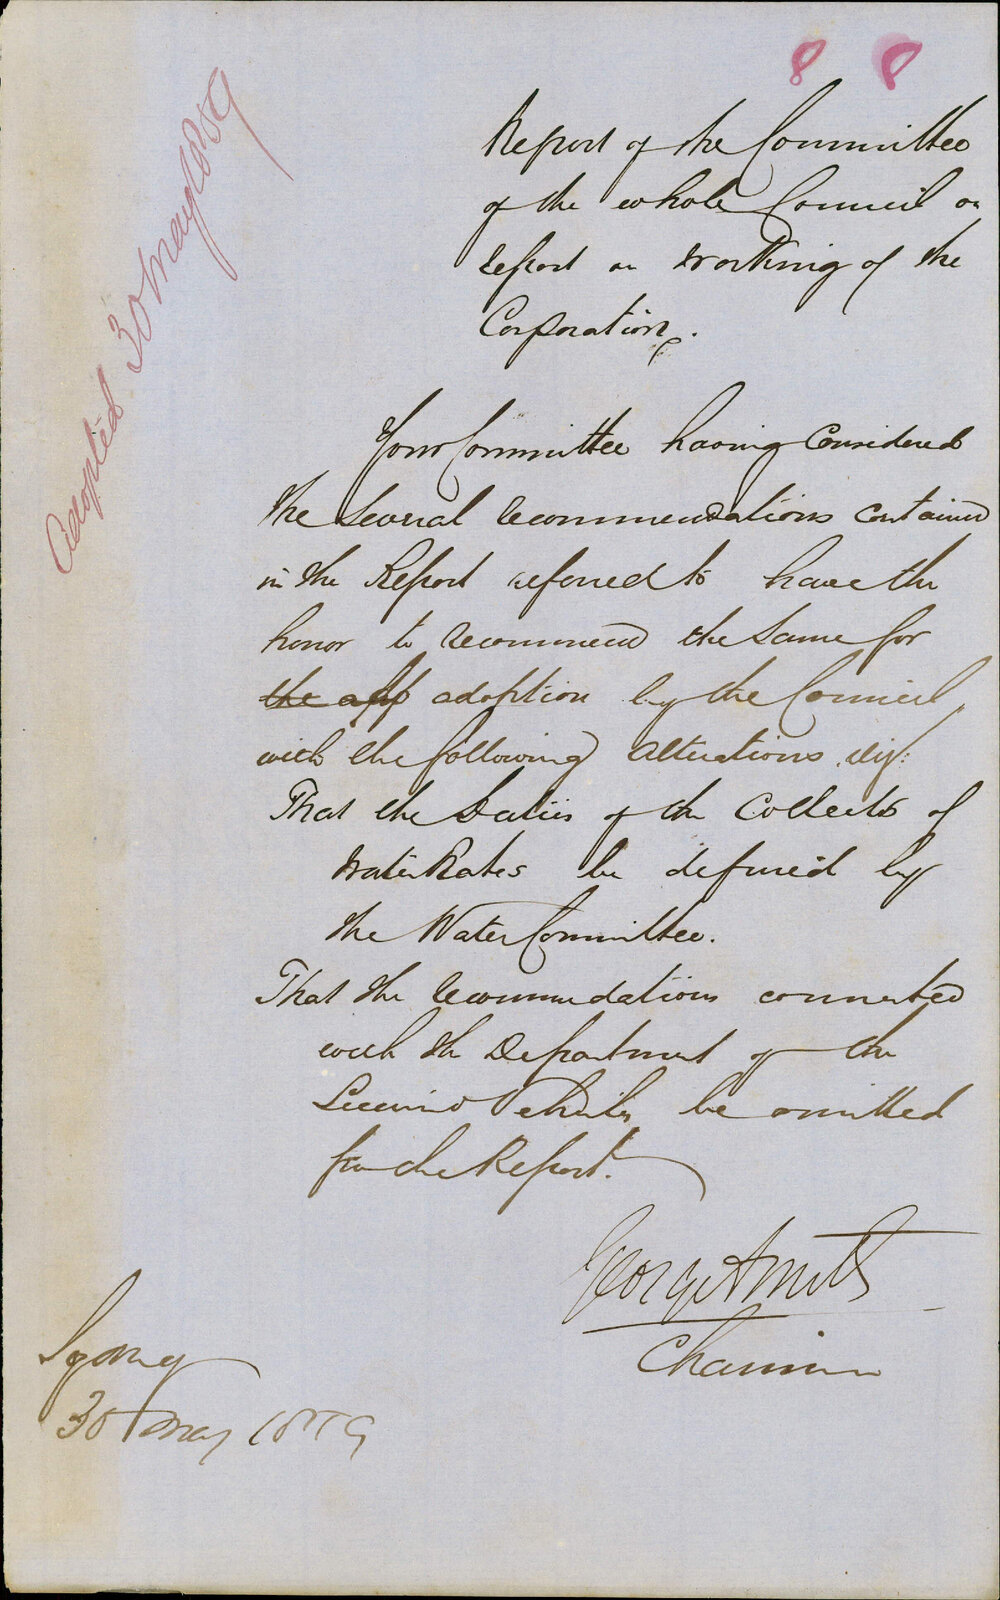 8 8
Adopted 30 May 1859
Report of the Committee
of the whole Council on
report on working of the
Corporation.
Your Committee having Considered
the several recommendations contained
in the Report referred to have the
honor to recommend the same for
the app adoption by the Council
with the following alterations viz:
That the duties of the Collector of
Water Rates be defined by
the Water Committee.
That the recommendations connected
with the Department of the
Licensed Vehicles be omitted
from the Report.
George Smith
Chairman
Sydney
30 May 1859